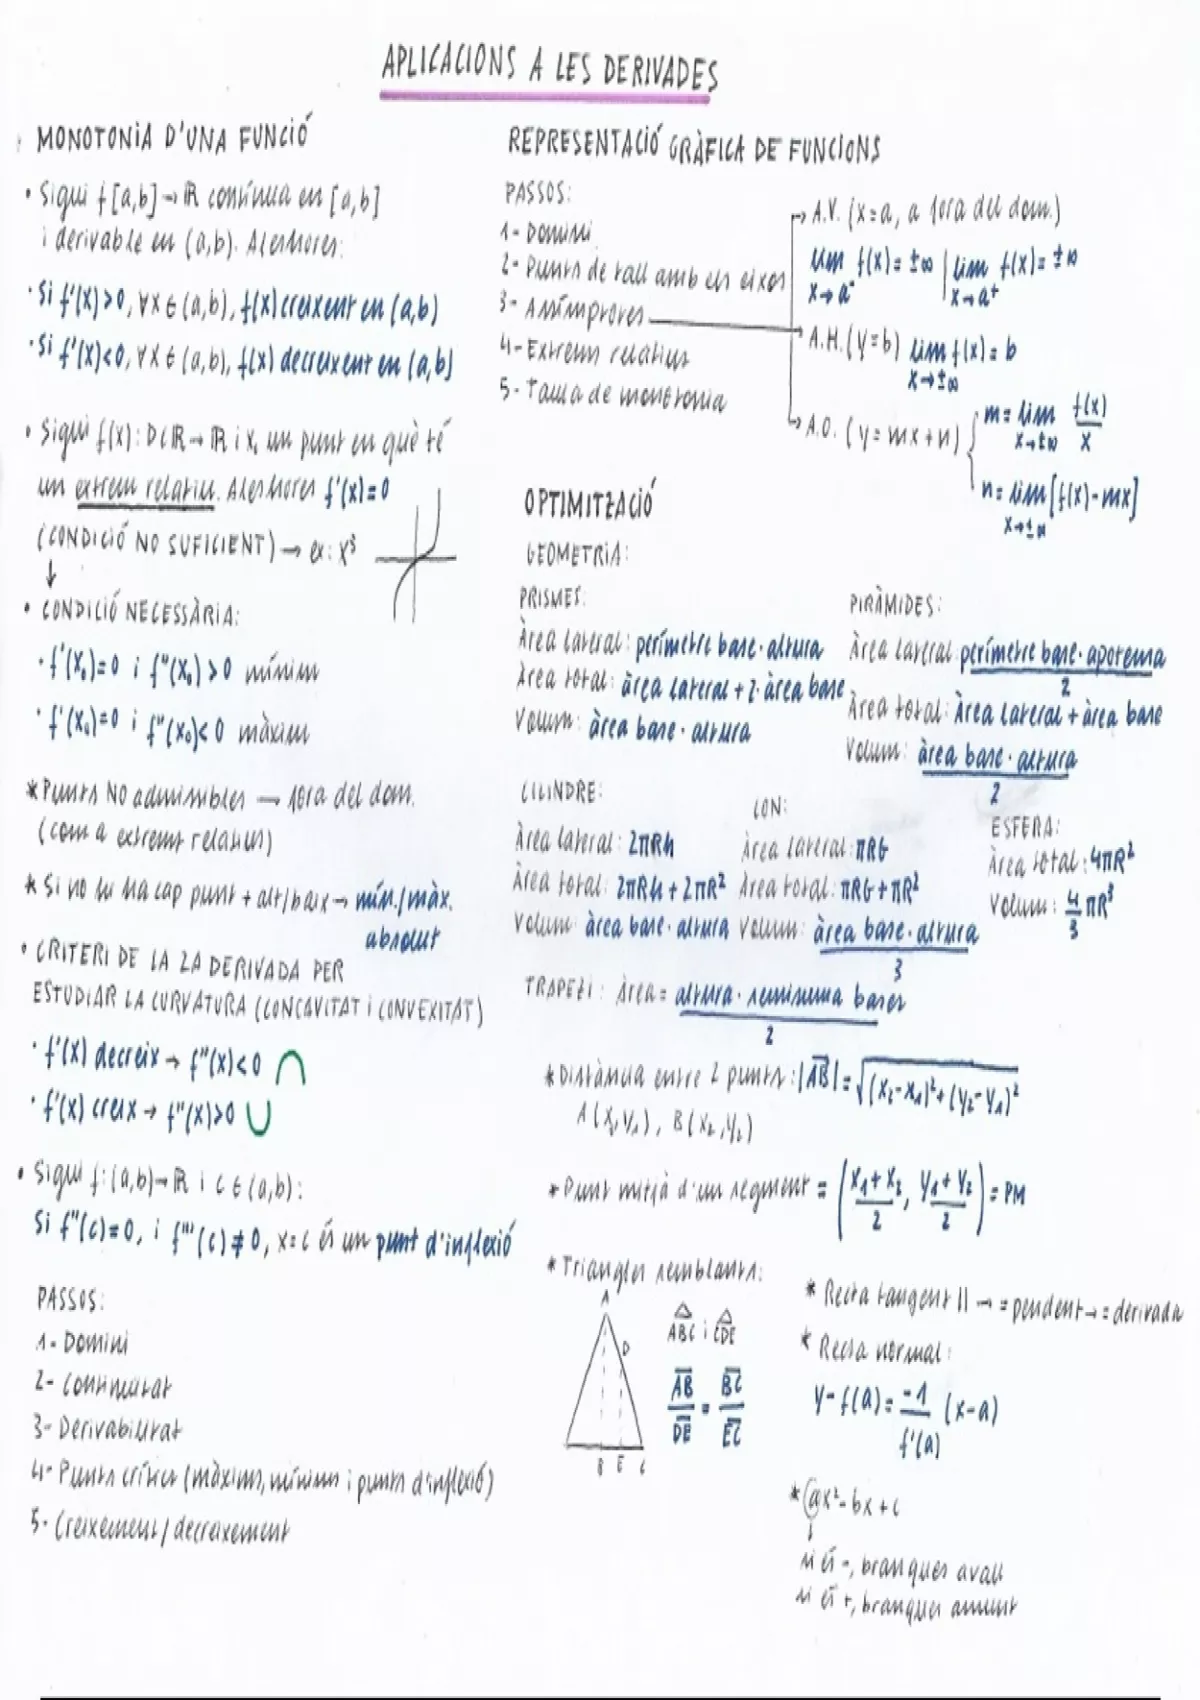 APLICACIONS A LES DERIVADES
MONOTONIA D'UNA FUNCIÓ
• Sigui f[a,b]→ℝ contínua en [a,b]
i derivable en (a,b). Aleshores:
· Si f'(x)>0, ∀x∈(a,b), f(x) creixent en (a,b)
· Si f'(x)<0, ∀x∈(a,b), f(x) decreixent en (a,b)
• Sigui f(x): D⊂ℝ→ℝ i x₀ un punt en què té
un extrem relatiu. Aleshores f'(x)=0
(CONDICIÓ NO SUFICIENT) → ex: x³
↓
• CONDICIÓ NECESSÀRIA:
· f'(x₀)=0 i f''(x₀)>0 mínim
· f'(x₀)=0 i f''(x₀)<0 màxim
* Punts NO admissibles → fora del dom.
(com a extrems relatius)
* Si no hi ha cap punt + alt/baix → mín./màx.
absolut
• CRITERI DE LA 2A DERIVADA PER
ESTUDIAR LA CURVATURA (CONCAVITAT i CONVEXITAT)
· f'(x) decreix → f''(x)<0 ∩
· f'(x) creix → f''(x)>0 ∪
• Sigui f:(a,b)→ℝ i c∈(a,b):
Si f''(c)=0, i f'''(c)≠0, x=c és un punt d'inflexió
PASSOS:
1- Domini
2- Continuïtat
3- Derivabilitat
4- Punts crítics (màxims, mínims i punts d'inflexió)
5- Creixement/decreixement
REPRESENTACIÓ GRÀFICA DE FUNCIONS
PASSOS:
1- Domini
2- Punts de tall amb els eixos
3- Asímptotes
4- Extrems relatius
5- Taula de monotonia
A.V. (x=a, a fora del dom.)
lim f(x)=±∞ | lim f(x)=±∞
x→a⁻ x→a⁺
A.H. (y=b) lim f(x)=b
x→±∞
A.O. (y=mx+n) { m= lim f(x)/x
x→±∞
n= lim [f(x)-mx]
x→±∞
OPTIMITZACIÓ
GEOMETRIA:
PRISMES:
Àrea lateral: perímetre base · altura
Àrea total: àrea lateral + 2· àrea base
Volum: àrea base · altura
PIRÀMIDES:
Àrea lateral: perímetre base · apotema
2
Àrea total: Àrea lateral + àrea base
Volum: àrea base · altura
2
CILINDRE:
Àrea lateral: 2πRh
Àrea total: 2πRh + 2πR²
Volum: àrea base · altura
CON:
Àrea lateral: πRG
Àrea total: πRG + πR²
Volum: àrea base · altura
3
ESFERA:
Àrea total: 4πR²
Volum: 4/3 πR³
TRAPEZI: Àrea = altura ·  bases
2
* Distància entre 2 punts: |AB| = √(x₂-x₁)²+(y₂-y₁)²
A(x₁,y₁), B(x₂,y₂)
* Punt mitjà d'un segment = (x₁+x₂/2, y₁+y₂/2) = PM
* Triangles semblants:
A
D
B E C
ABC i CDE
AB/DE = BC/EC
* Recta tangent || → = pendent → = derivada
* Recta normal:
y-f(a)= -1/f'(a) (x-a)
* ax²-bx+c
↓
si és -, branques avall
si és +, branques amunt